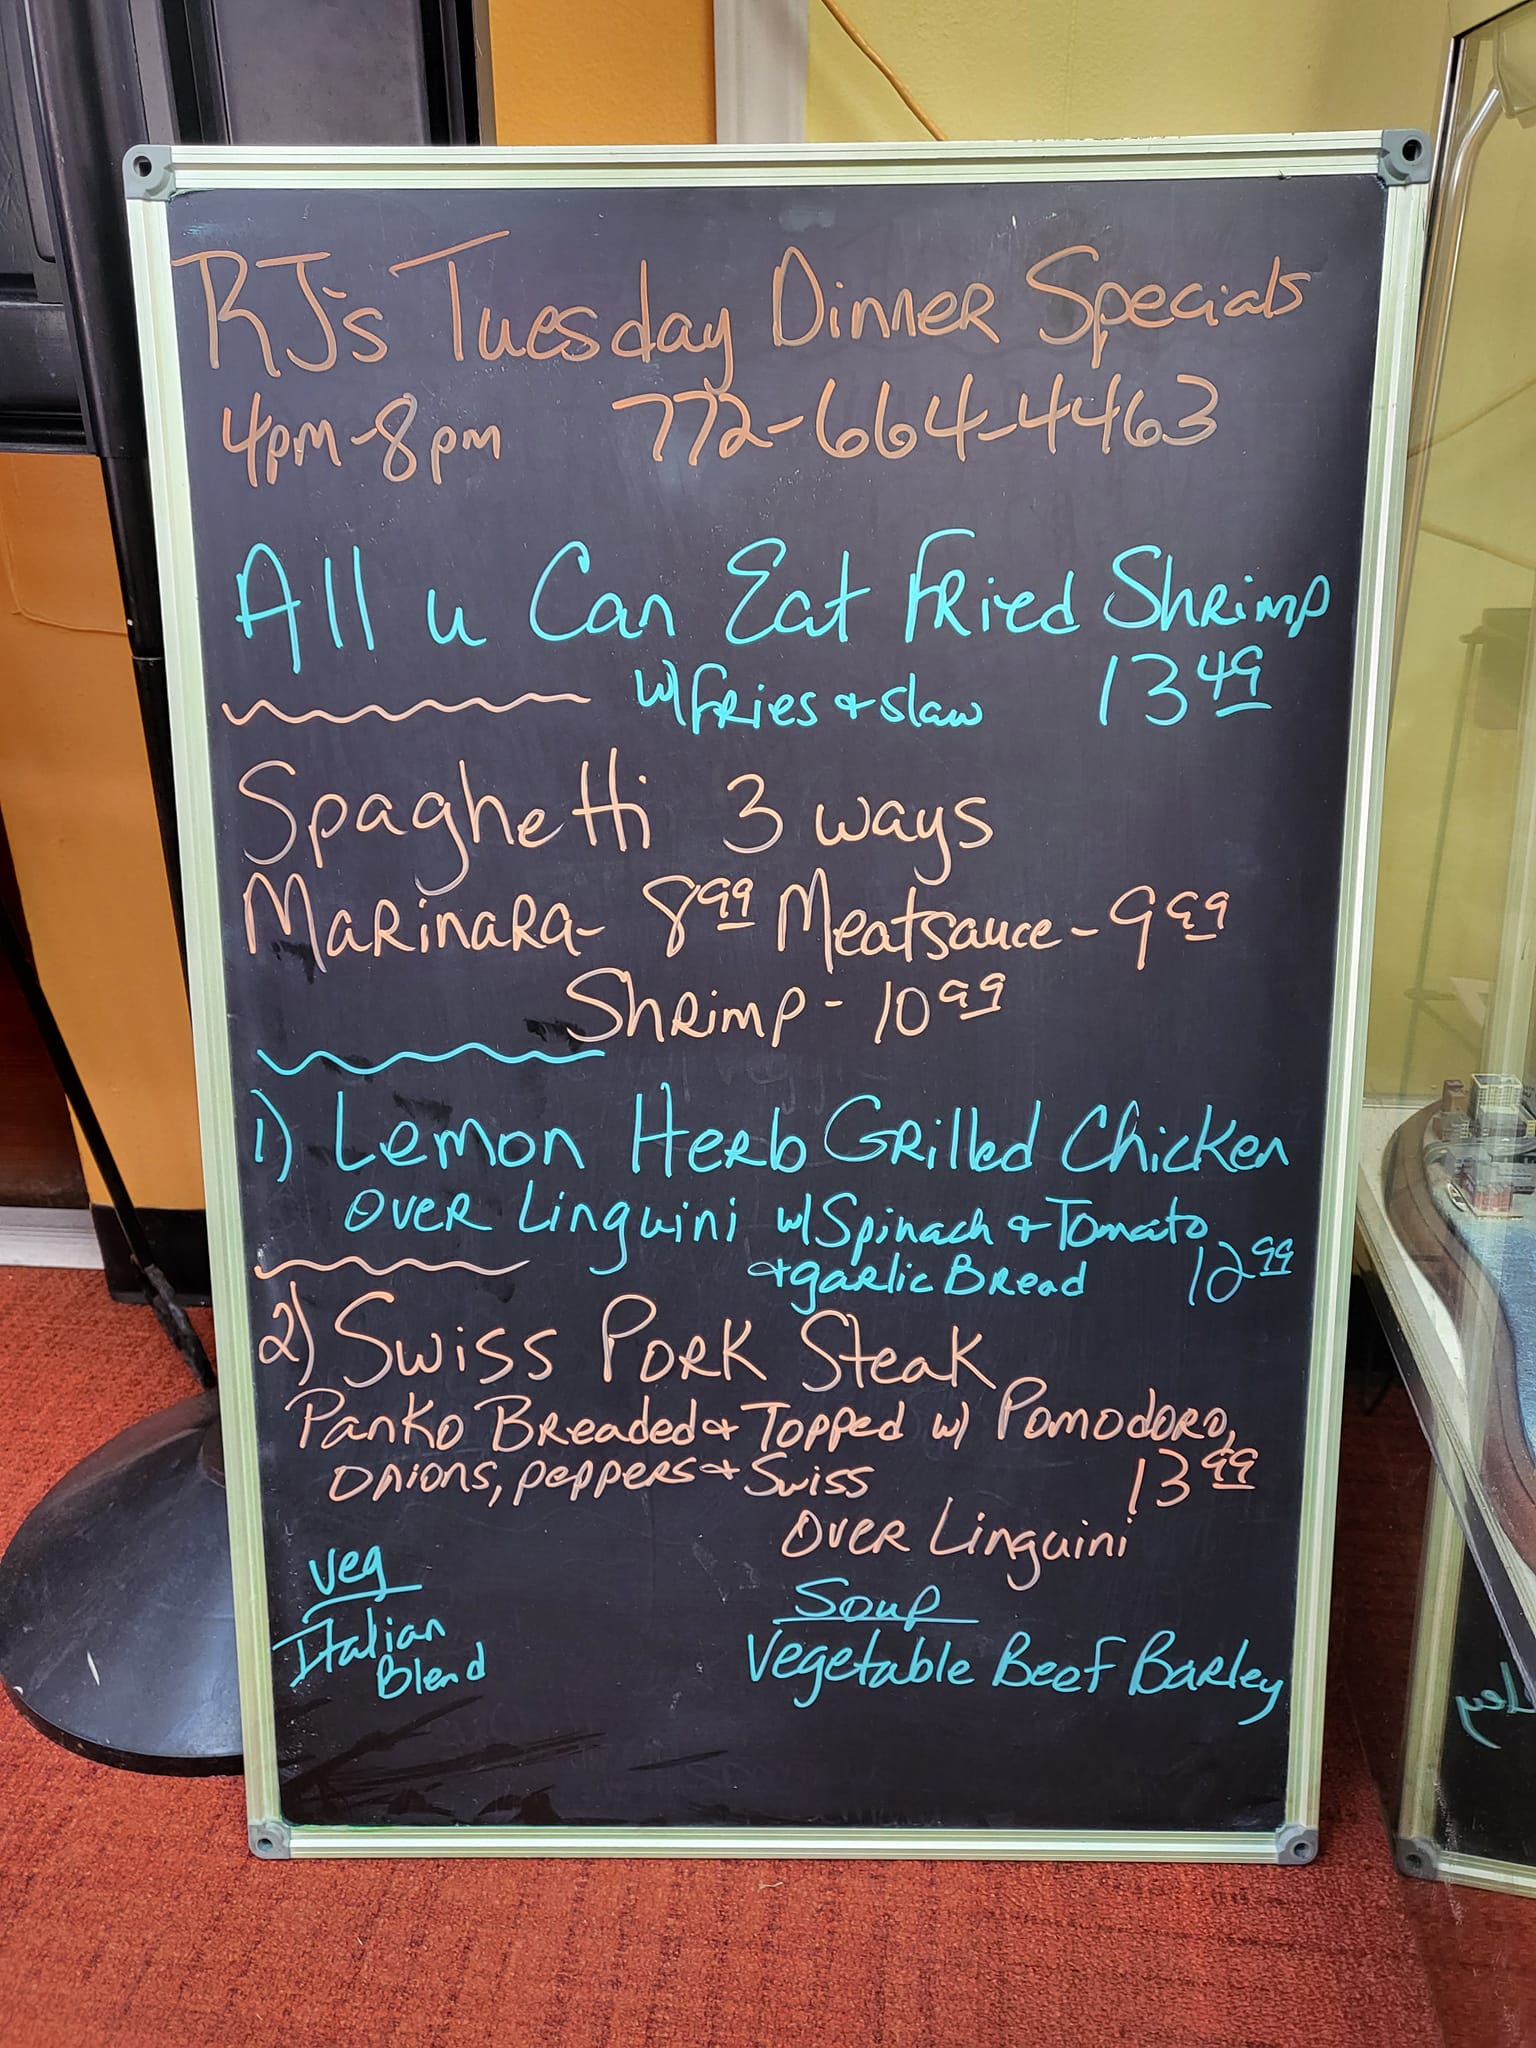 RJ's Tuesday Dinner Specials
4pm-8pm 772-664-4463
All u Can Eat Fried Shrimp
w/Fries & Slaw 13 49
Spaghetti 3 ways
Marinara- 8 99 Meatsauce- 9 99
Shrimp- 10 99
1) Lemon Herb Grilled Chicken
Over Linguini w/Spinach & Tomato
& garlic Bread 12 99
2) Swiss Pork Steak
Panko Breaded & Topped w/ Pomodoro,
Onions, peppers & Swiss 13 99
Over Linguini
Veg
Italian
Blend
Soup
Vegetable Beef Barley